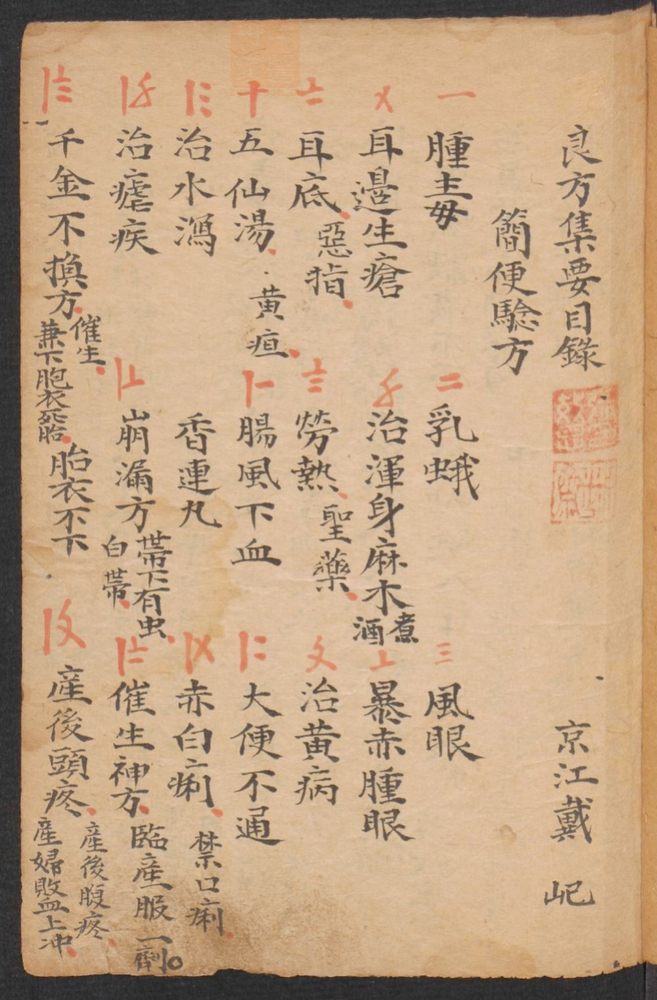 良方集要目錄 京江戴屺
簡便驗方
一 腫毒 二 乳蛾 三 風眼
〤 耳邊生瘡 〥 治渾身麻木 煮酒 〦 暴赤腫眼
〧 耳底 惡指 〨 勞熱 聖藥 〩 治黃病
十 五仙湯 黃疸 〡一 腸風下血 〡二 大便不通
〡三 治水瀉 香連丸 〡〤 赤白痢 禁口痢
〡〥 治瘧疾 〡〦 崩漏方 帶下有虫 白帶 〡〧 催生神方 臨產服一劑
〡〨 千金不換方 催生 兼下胞衣死胎 胎衣不下 〡〩 產後頭疼 產後腹疼 產婦敗血上冲